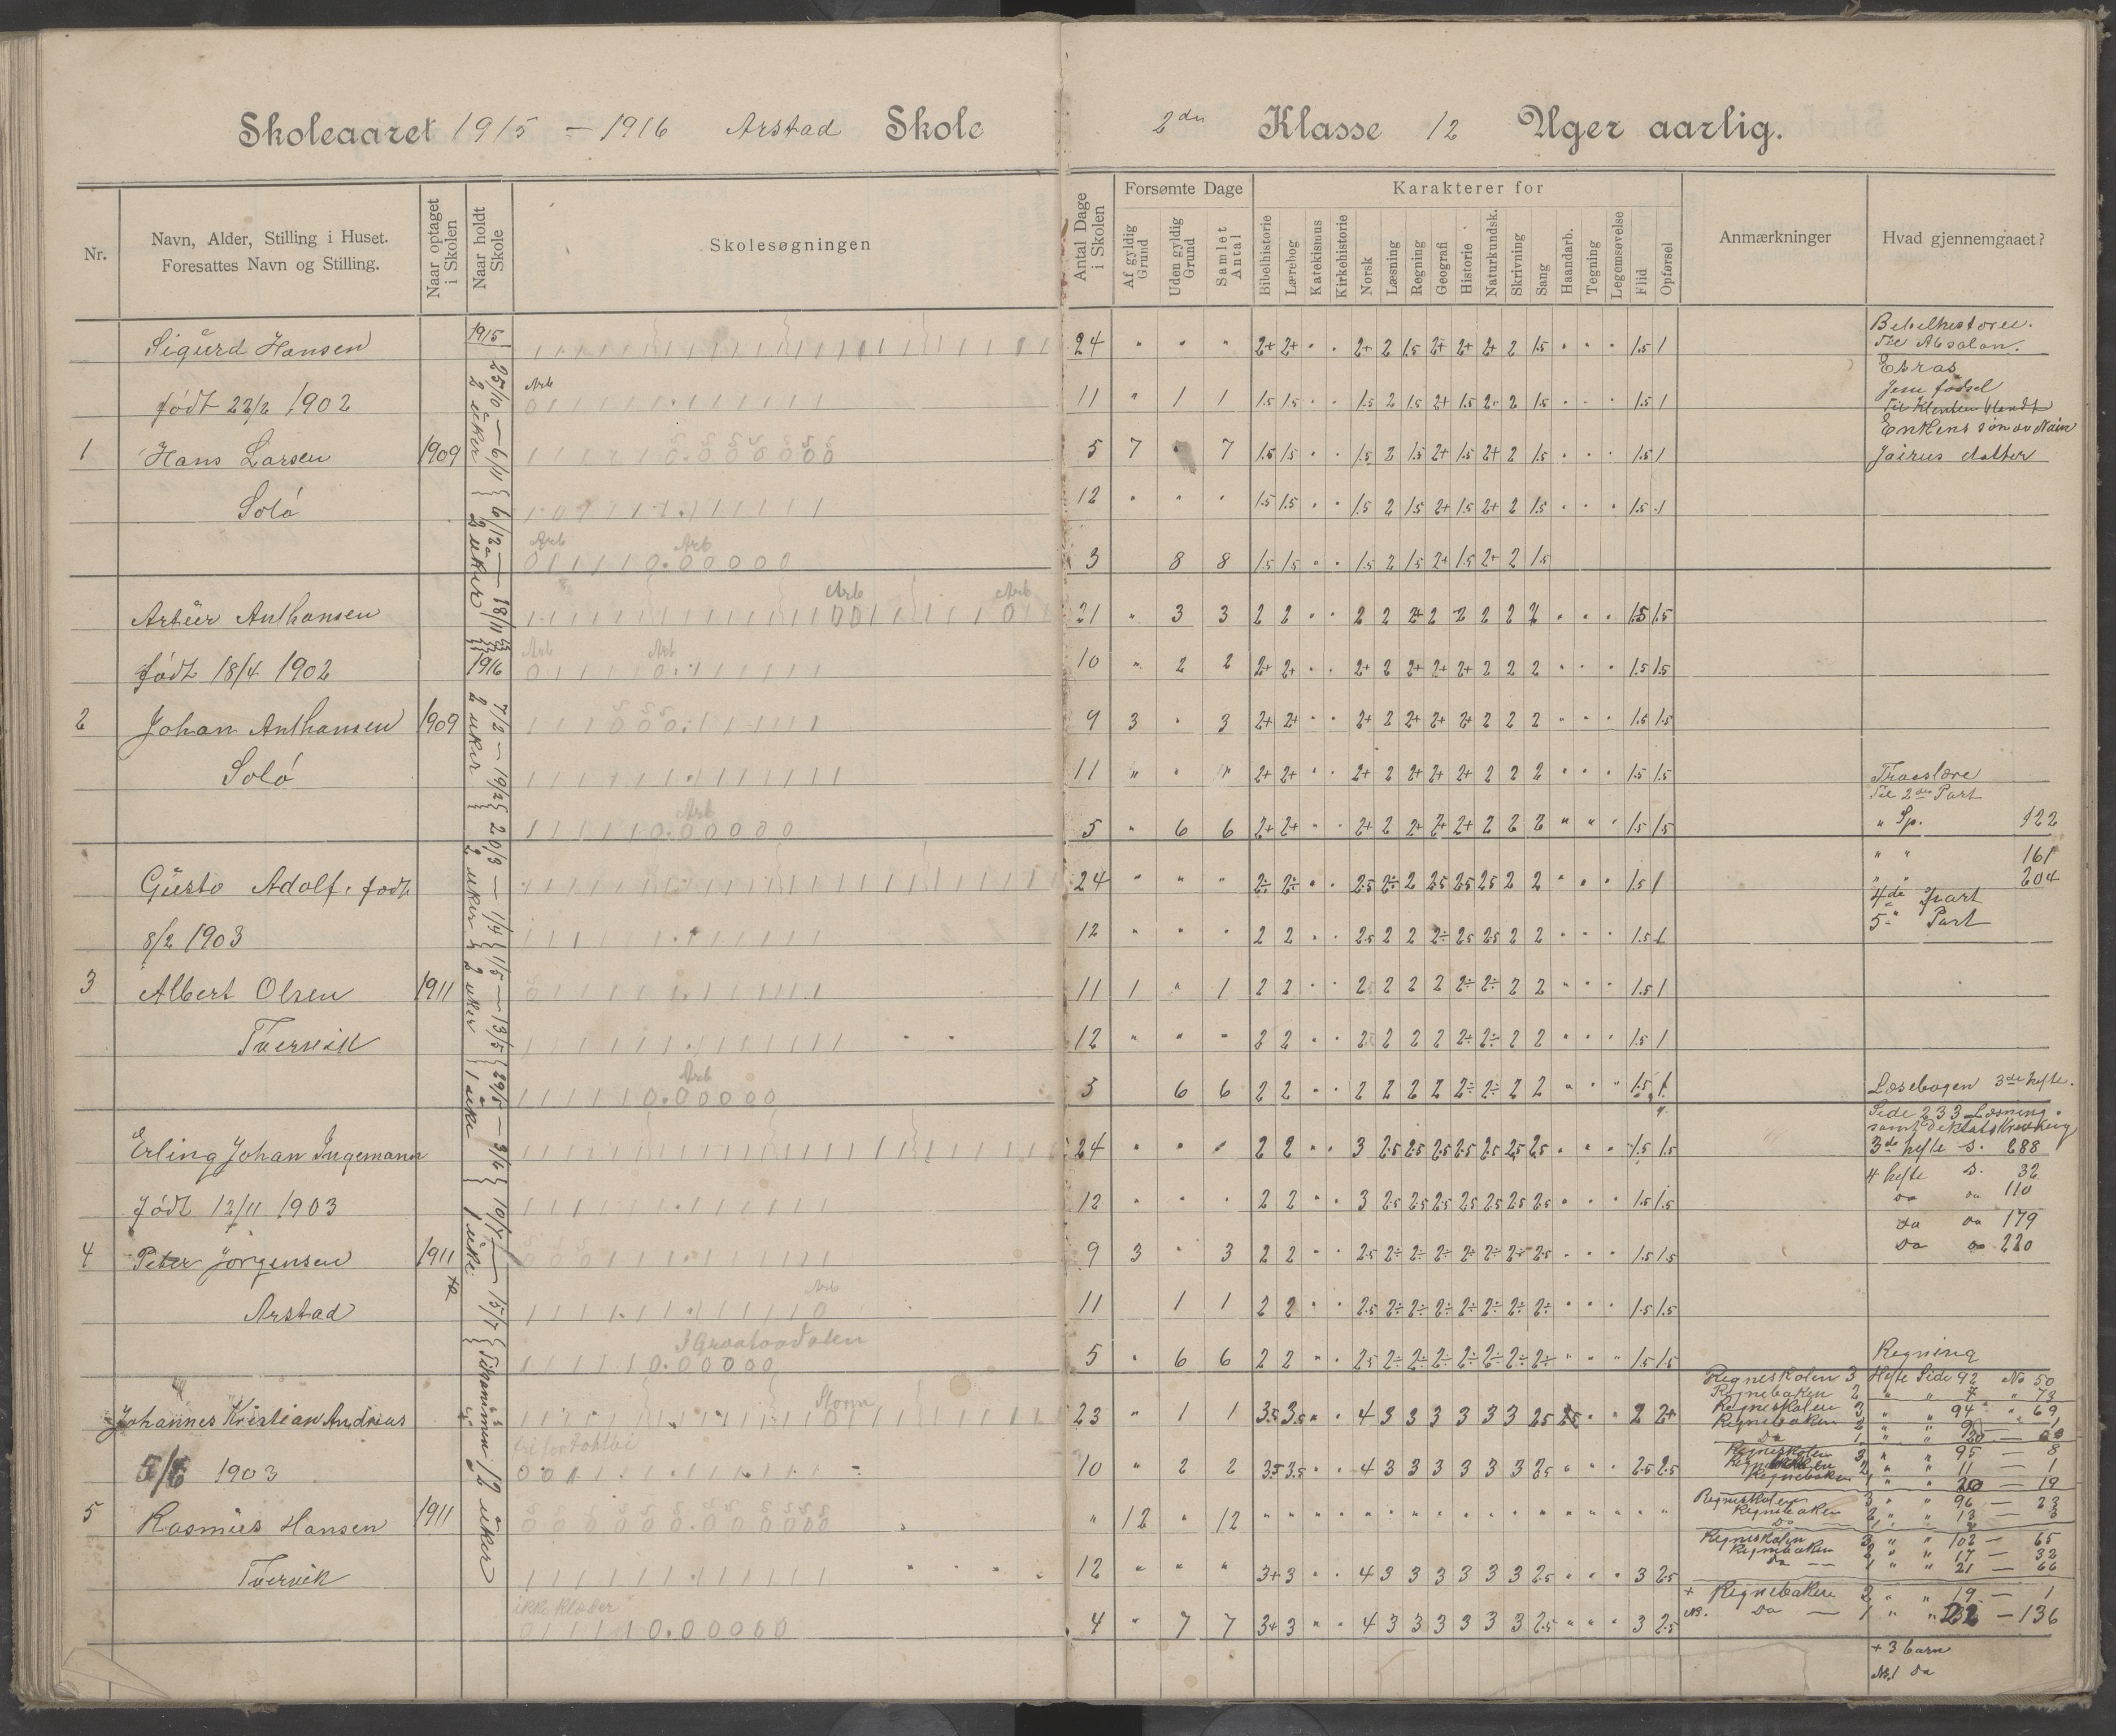 Skoleaaret 1915 – 1916 Arstad Skole
2den Klasse 12 Uger aarlig.
Nr.
Navn, Alder, Stilling i Huset.
Foresattes Navn og Stilling.
Naar optaget i Skolen
Naar holdt Skole
Skolesøgningen
Antal Dage i Skolen
Forsømte Dage
Af gyldig Grund
Uden gyldig Grund
Samlet Antal
Karakterer for
Bibelhistorie
Lærebog
Katekismus
Kirkehistorie
Norsk
Læsning
Regning
Geografi
Historie
Naturkundsk.
Skrivning
Sang
Haandarb.
Tegning
Legemsøvelse
Flid
Opførsel
Anmærkninger
Hvad gjennemgaaet?
1915
25/10 – 6/11 2 uker
6/12 – 18/12 2 uker
1916
7/2 – 19/2 2 uker
20/3 – 1/4 2 uker
1/5 – 13/5 2 uker
29/5 – 3/6 1 uke
10/7 – 15/7 1 uke
Tilsammen 12 uker
Sigurd Hansen 24 " " " 2+ 2+ " " 2+ 2 1.5 2+ 2+ 2+ 2 1.5 " " " 1.5 1
født 22/2 1902 Arb 11 " 1 1 1.5 1.5 " " 1.5 2 1.5 2+ 1.5 2+ 2 1.5 " " " 1.5 1
1 Hans Larsen 1909 5 7 " 7 1.5 1.5 " " 1.5 2 1.5 2+ 1.5 2+ 2 1.5 " " " 1.5 1
Solö 12 " " " 1.5 1.5 " " 1.5 2 1.5 2+ 1.5 2+ 2 1.5 " " " 1.5 1
Arb Arb 3 8 8 1.5 1.5 " " 1.5 2 1.5 2+ 1.5 2+ 2 1.5
Artur Anthonsen Arb Arb 21 " 3 3 2 2 " " 2 2 2+ 2 2 2 2 2 " " " 1.5 1.5
født 18/4 1902 Arb Arb 10 " 2 2 2+ 2+ " " 2+ 2 2+ 2+ 2+ 2 2 2 " " " 1.5 1.5
2 Johan Anthonsen 1909 9 3 " 3 2+ 2+ " " 2+ 2 2+ 2+ 2+ 2 2 2 " " " 1.5 1.5
Solö 11 " " " 2+ 2+ " " 2+ 2 2+ 2+ 2+ 2 2 2 " " " 1.5 1.5
Arb 5 " 6 6 2+ 2+ " " 2+ 2 2+ 2+ 2+ 2 2 2 " " " 1.5 1.5
Gusto Adolf, født 24 " " " 2÷ 2÷ " " 2.5 2÷ 2 2.5 2.5 2.5 2 2 " " " 1.5 1
8/2 1903 12 " " " 2 2 " " 2.5 2 2 2÷ 2.5 2.5 2 2 " " " 1.5 1
3 Albert Olsen 1911 11 1 " 1 2 2 " " 2 2 2 2 2÷ 2÷ 2 2 " " " 1.5 1
Tvervik 12 " " " 2 2 " " 2 2 2 2 2÷ 2÷ 2 2 " " " 1.5 1
Arb 5 6 6 2 2 " " 2 2 2 2 2÷ 2÷ 2 2 " " " 1.5 1
Erling Johan Ingemann 24 " " " 2 2 " " 3 2.5 2.5 2.5 2.5 2.5 2.5 2.5 " " " 1.5 1.5
født 12/11 1903 12 " " " 2 2 " " 3 2.5 2.5 2.5 2.5 2.5 2.5 2.5 " " " 1.5 1.5
4 Peter Jörgensen 1911 9 3 " 3 2 2 " " 2.5 2÷ 2÷ 2÷ 2÷ 2÷ 2÷ 2.5 " " " 1.5 1.5
Arstad Arb 11 1 1 2 2 " " 2.5 2÷ 2÷ 2÷ 2÷ 2÷ 2÷ 2÷ " " " 1.5 1.5
5 " 6 6 2 2 " " 2.5 2÷ 2÷ 2÷ 2÷ 2÷ 2÷ 2÷ " " " 1.5 1.5
Johannes Kristian Andreas Storm 23 " 1 1 3.5 3.5 " " 4 3 3 3 3 3 3 2.5 " " 2 2+
5/6 1903 10 " 2 2 3.5 3.5 " " 4 3 3 3 3 3 3 2.5 " " " 2.5 2.5
5 Rasmus Hansen 1911 " 12 " 12
Tvervik 12 " " " 3+ 3 " " 4 3 3 3 3 3 3 2.5 " " " 3 2.5
ikke klæder 4 " 7 7 3+ 3 " " 4 3 3 3 3 3 3 2.5 " " " 3 2.5
Bibelhistorie.
Til Absalon.
Esras
Jesu fødsel
Enkens søn av Nain
Jairus datter
Troeslære
Til 2den Part
" Sp. 122
" " 161
" " 204
4de Part
5" Part
Læsebogen 3de hefte.
Side 233 Læsning.
3de hefte S. 288
4 hefte S. 32
do do 110
do do 179
do do 220
Regning
Regneskolen 3 Hefte Side 92 No 50
Regnebaken 2 " " 7 " 73
Regneskolen 3 " " 94 " 69
Regnebaken 2
Do 1
Regneskolen 3 " " 95 – 8
" " 11 – 1
Regnebaken 1 " " 20 – 19
Regneskolen 3 " " 96 – 23
Regnebaken 2 " " 13 – 3
Do
Regneskolen 3 " " 102 – 65
Regnebaken 2 " " 17 – 32
Do 1 " " 21 – 66
+ Regnebaken 2 " " 19 – 1
Do 1 " " 22 – 136
+ 3 barn
No. 1 Do